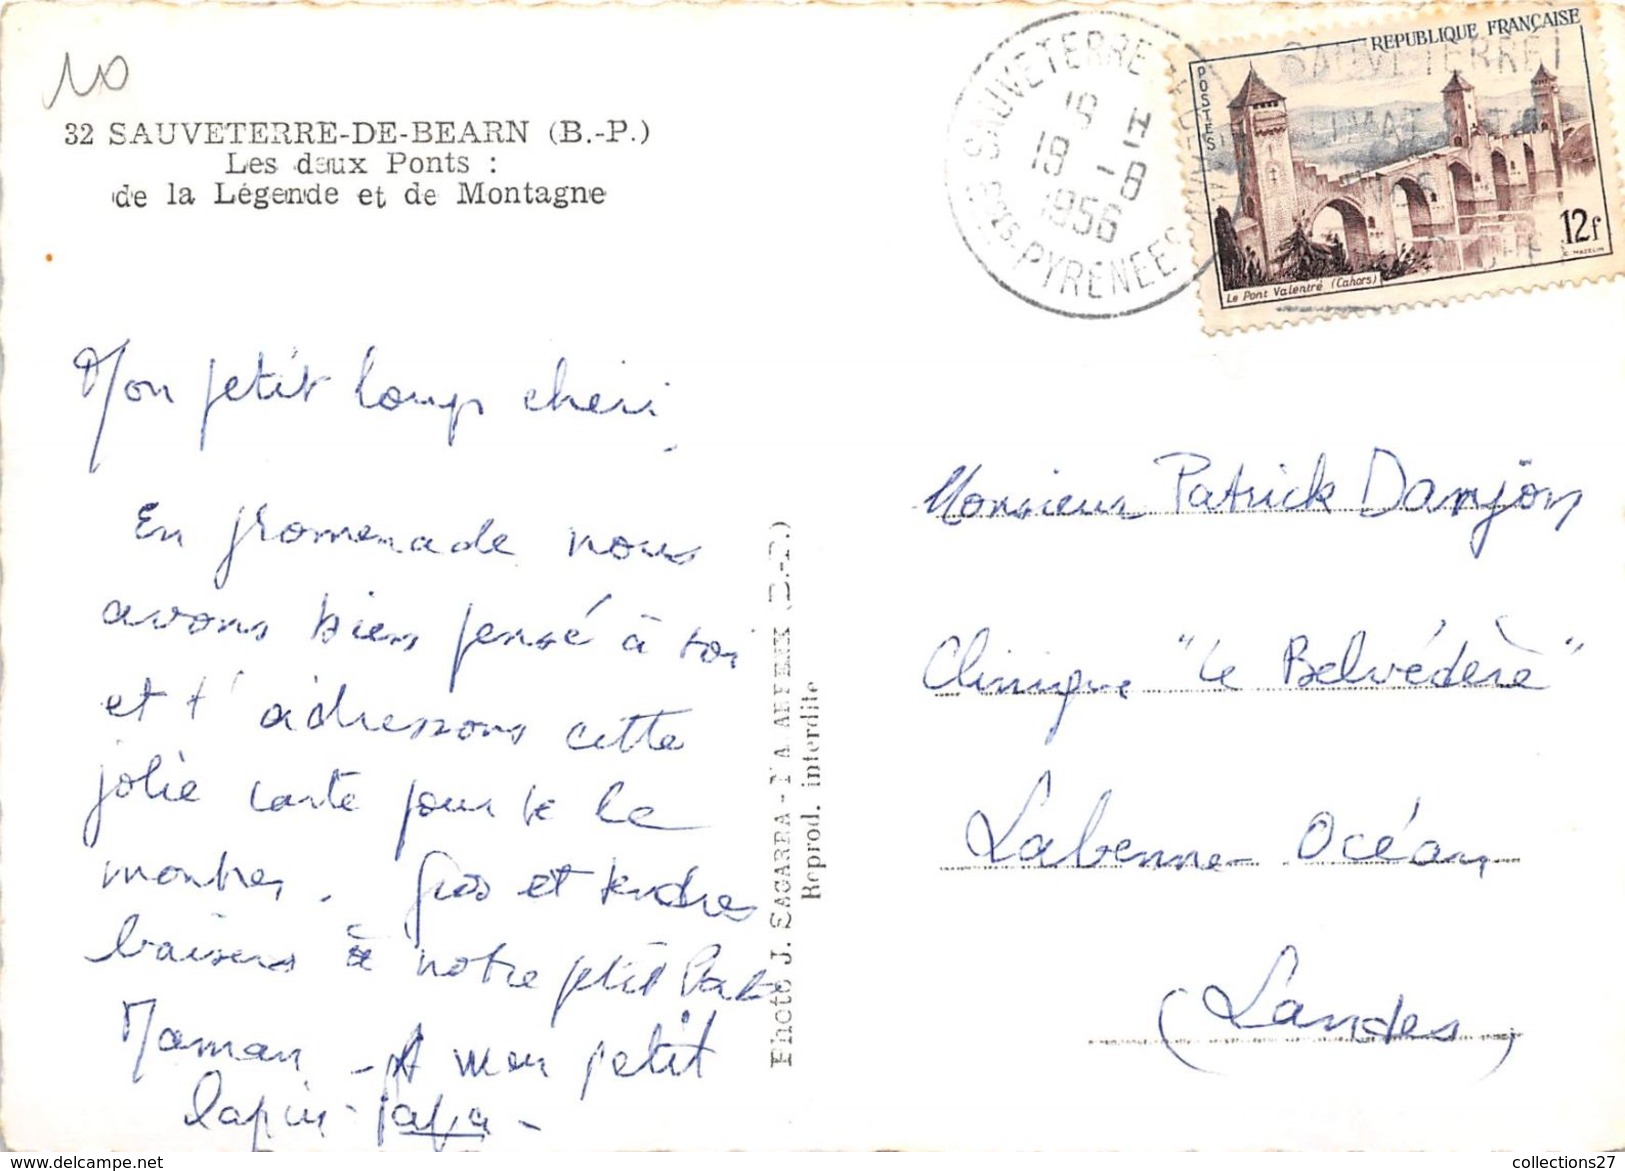 10
32 SAUVETERRE-DE-BEARN (B.-P.)
Les deux Ponts :
de la Légende et de Montagne
SAUVETERRE
19 H
19 -8
1956
BSES-PYRENEES
REPUBLIQUE FRANÇAISE
POSTES
12f
Le Pont Valentré (Cahors)
C. MAZELIN
SAUVETERRE
CLIMAT
Mon petit loup chéri,
En promenade nous
avons bien pensé à toi
et t'adressons cette
jolie carte pour te le
montrer. Gros et tendres
baisers à notre petit Pat
Maman - A mon petit
lapin - papa -
Photo J. SAGARRA - NAVARRENX (B.-P.)
Reprod. interdite
Monsieur Patrick Danjon
Clinique "Le Belvédère"
Labenne-Océan
(Landes)
collections27